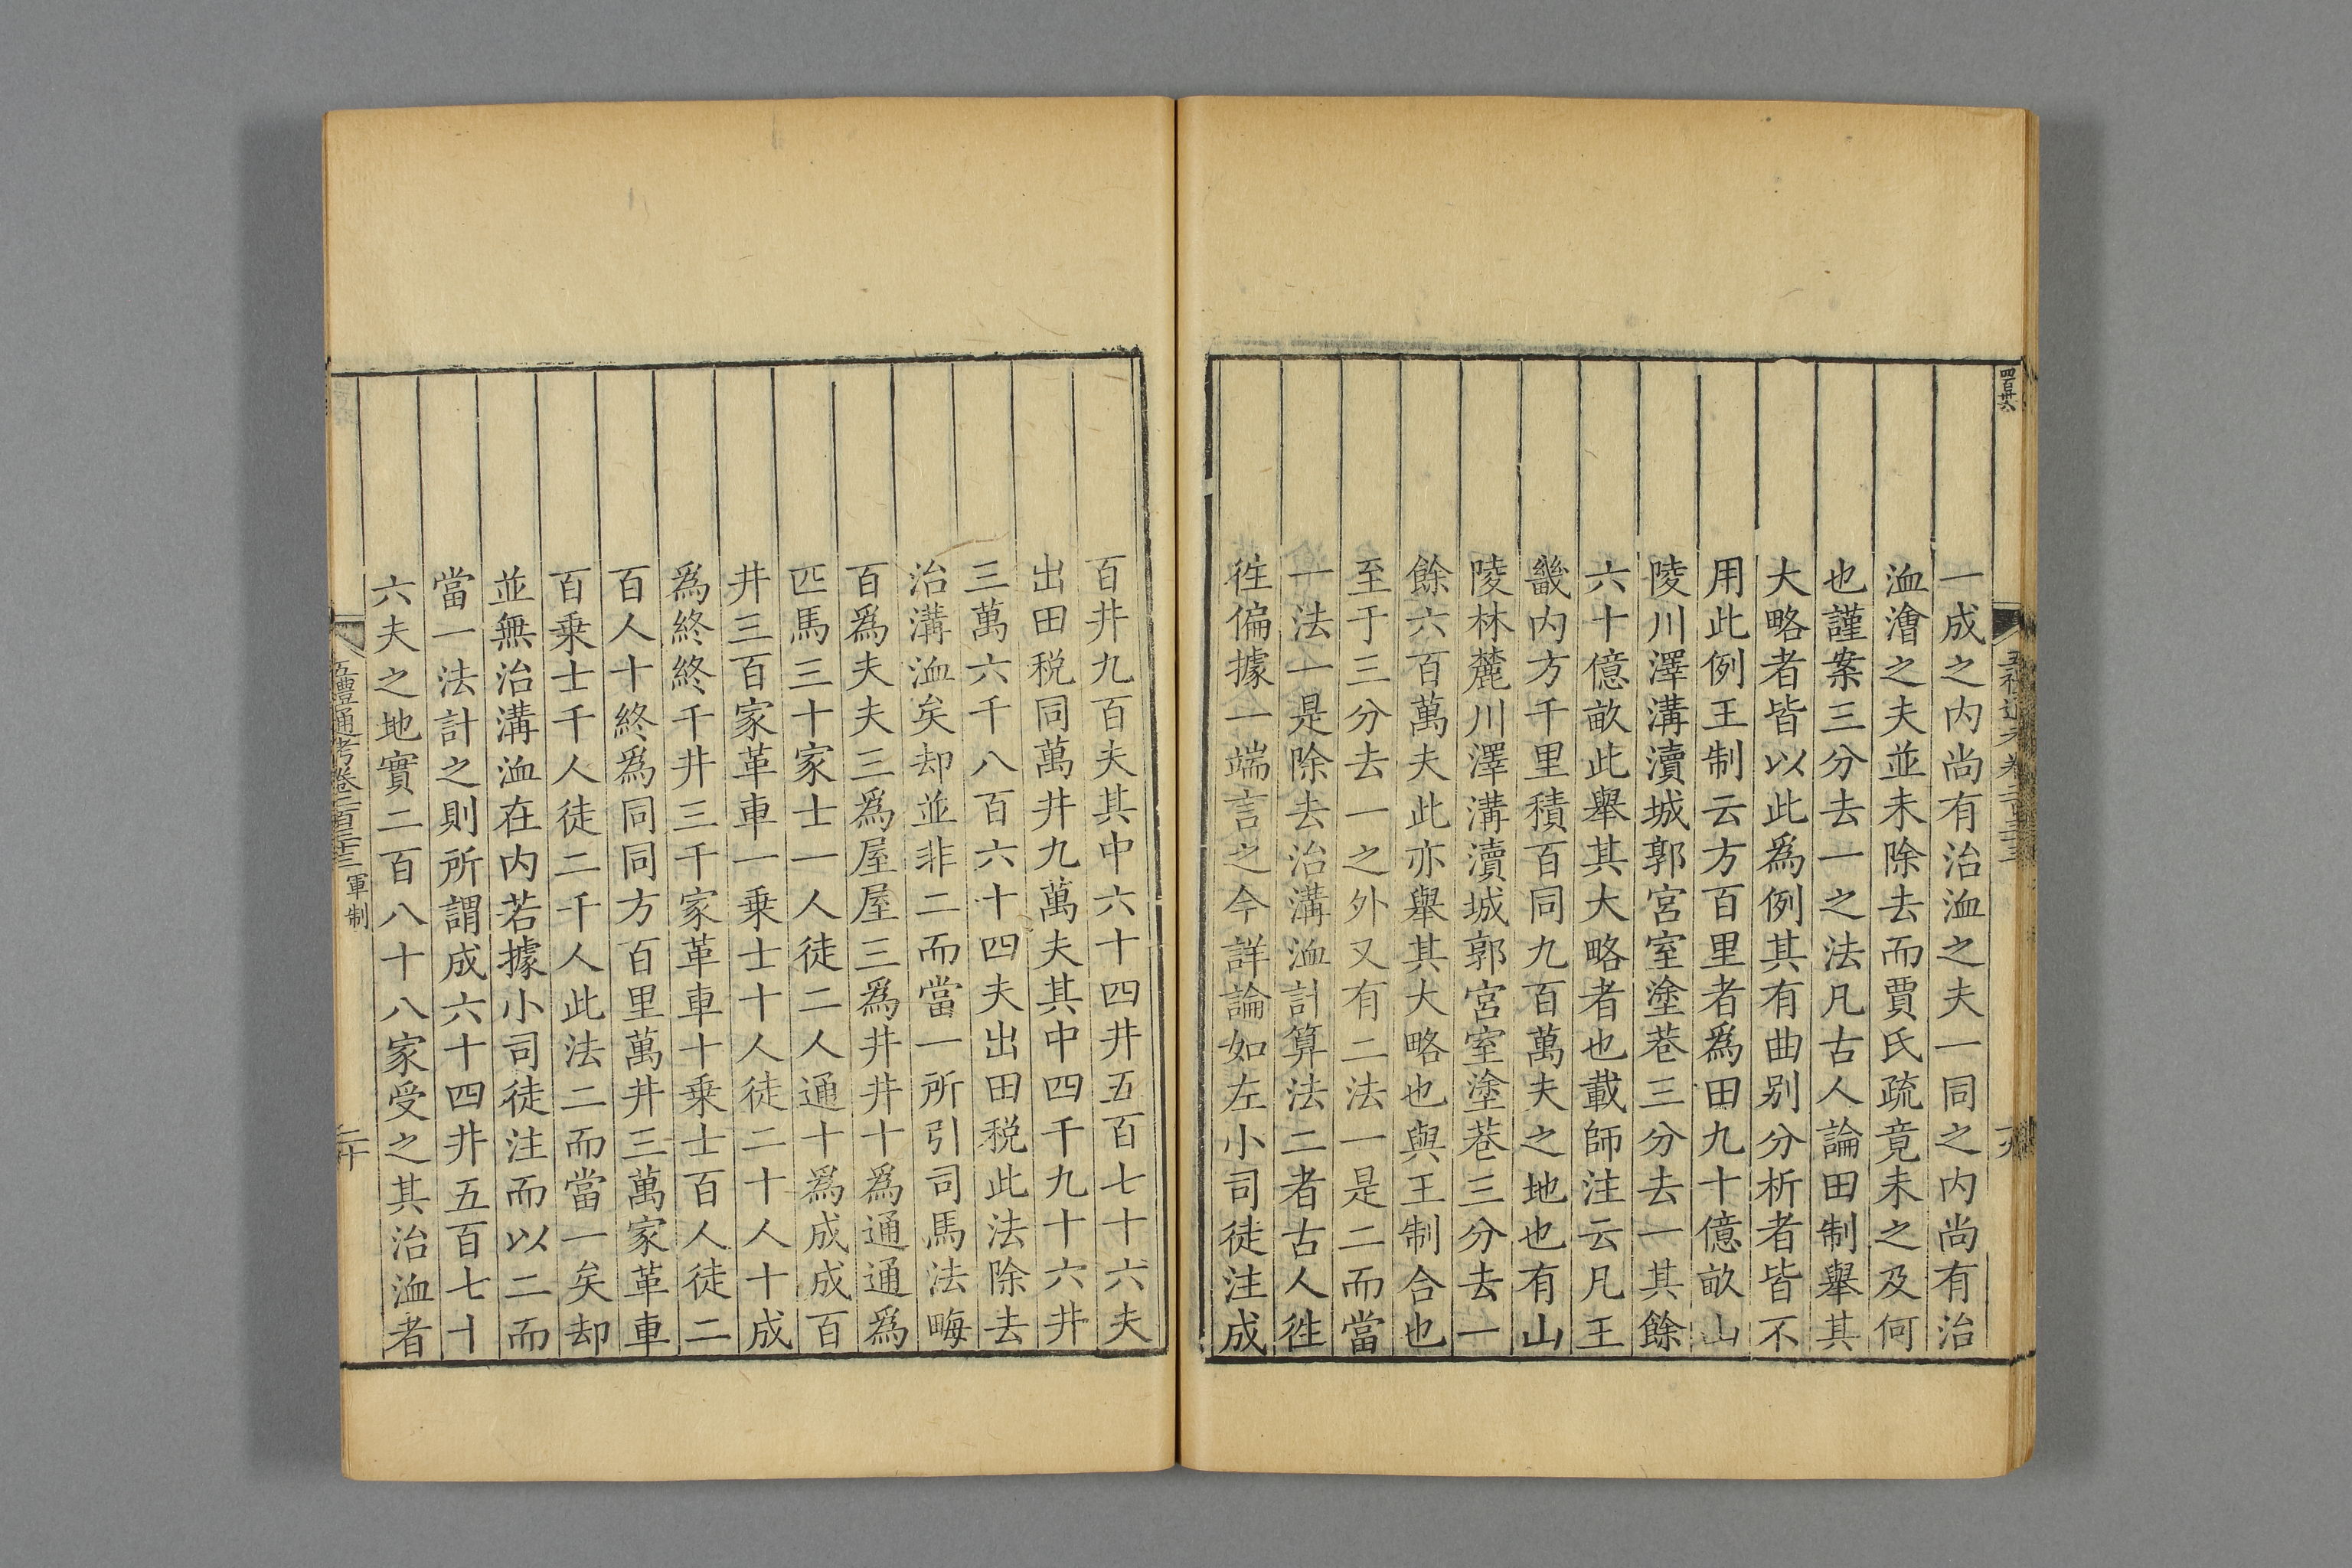 四百卅六
一成之内尚有治洫之夫一同之内尚有治
洫澮之夫並未除去而賈氏疏竟未之及何
也謹案三分去一之法凡古人論田制舉其
大略者皆以此爲例其有曲别分析者皆不
用此例王制云方百里者爲田九十億畝山
陵川澤溝瀆城郭宮室塗巷三分去一其餘
六十億畝此舉其大略者也載師注云凡王
畿内方千里積百同九百萬夫之地也有山
陵林麓川澤溝瀆城郭宮室塗巷三分去一
餘六百萬夫此亦舉其大略也與王制合也
至于三分去一之外又有二法一是二而當
一法一是除去治溝洫計算法二者古人徃
徃偏據一端言之今詳論如左小司徒注成
百井九百夫其中六十四井五百七十六夫
出田税同萬井九萬夫其中四千九十六井
三萬六千八百六十四夫出田税此法除去
治溝洫矣却並非二而當一所引司馬法畮
百爲夫夫三爲屋屋三爲井井十爲通通爲
匹馬三十家士一人徒二人通十爲成成百
井三百家革車一乗士十人徒二十人十成
爲終終千井三千家革車十乗士百人徒二
百人十終爲同同方百里萬井三萬家革車
百乗士千人徒二千人此法二而當一矣却
並無治溝洫在内若據小司徒注而以二而
當一法計之則所謂成六十四井五百七十
六夫之地實二百八十八家受之其治洫者
五禮通考卷二百三十三 軍制
二十